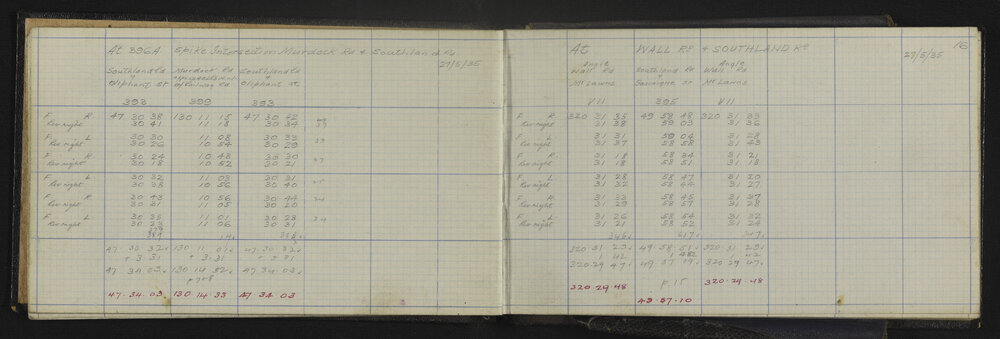 At 396A Spike Intersection Murdock Rd & Southland Rd.
27/5/35
Southland Rd Murdock Rd Southland Rd
Oliphant St Oliphant St
393 399 393
F R 47 30 38 130 11 15 47 30 42
Rev right 30 41 11 18 30 34
F L 30 30 11 08 30 33
Rev right 30 26 10 54 30 29
F R 30 24 10 48 30 30
Rev right 30 18 10 52 30 21
F L 30 32 11 03 30 31
Rev right 30 38 10 56 30 40
F R 30 43 10 56 30 44
Rev right 30 31 11 05 30 20
F L 30 35 11 01 30 28
Rev right 30 23 11 06 30 31
47 30 32 130 11 01 47 30 32
+ 3 31 + 3 31 + 3 31
47 34 03 130 14 32 47 34 03
47.34.03 130.14.33 47.34.03
16
At WALL RD & SOUTHLAND RD
27/5/35
Angle Angle
Wall Rd Southland Rd Wall Rd
McLawns Gascoigne St McLawns
VII 395 VII
F R 320 31 35 49 58 48 320 31 33
Rev right 31 38 59 03 31 36
F L 31 31 59 04 31 28
Rev right 31 37 58 58 31 43
F R 31 18 58 34 31 21
Rev right 31 18 58 51 31 18
F L 31 28 58 47 31 20
Rev right 31 32 58 44 31 27
F R 31 33 58 45 31 37
Rev right 31 29 58 57 31 28
F L 31 26 58 54 31 32
Rev right 31 21 58 52 31 24
320 31 29 49 58 51 320 31 29
320 29 47 49 57 09 320 29 47
p 15
320.29.48 320.29.48
49.57.10